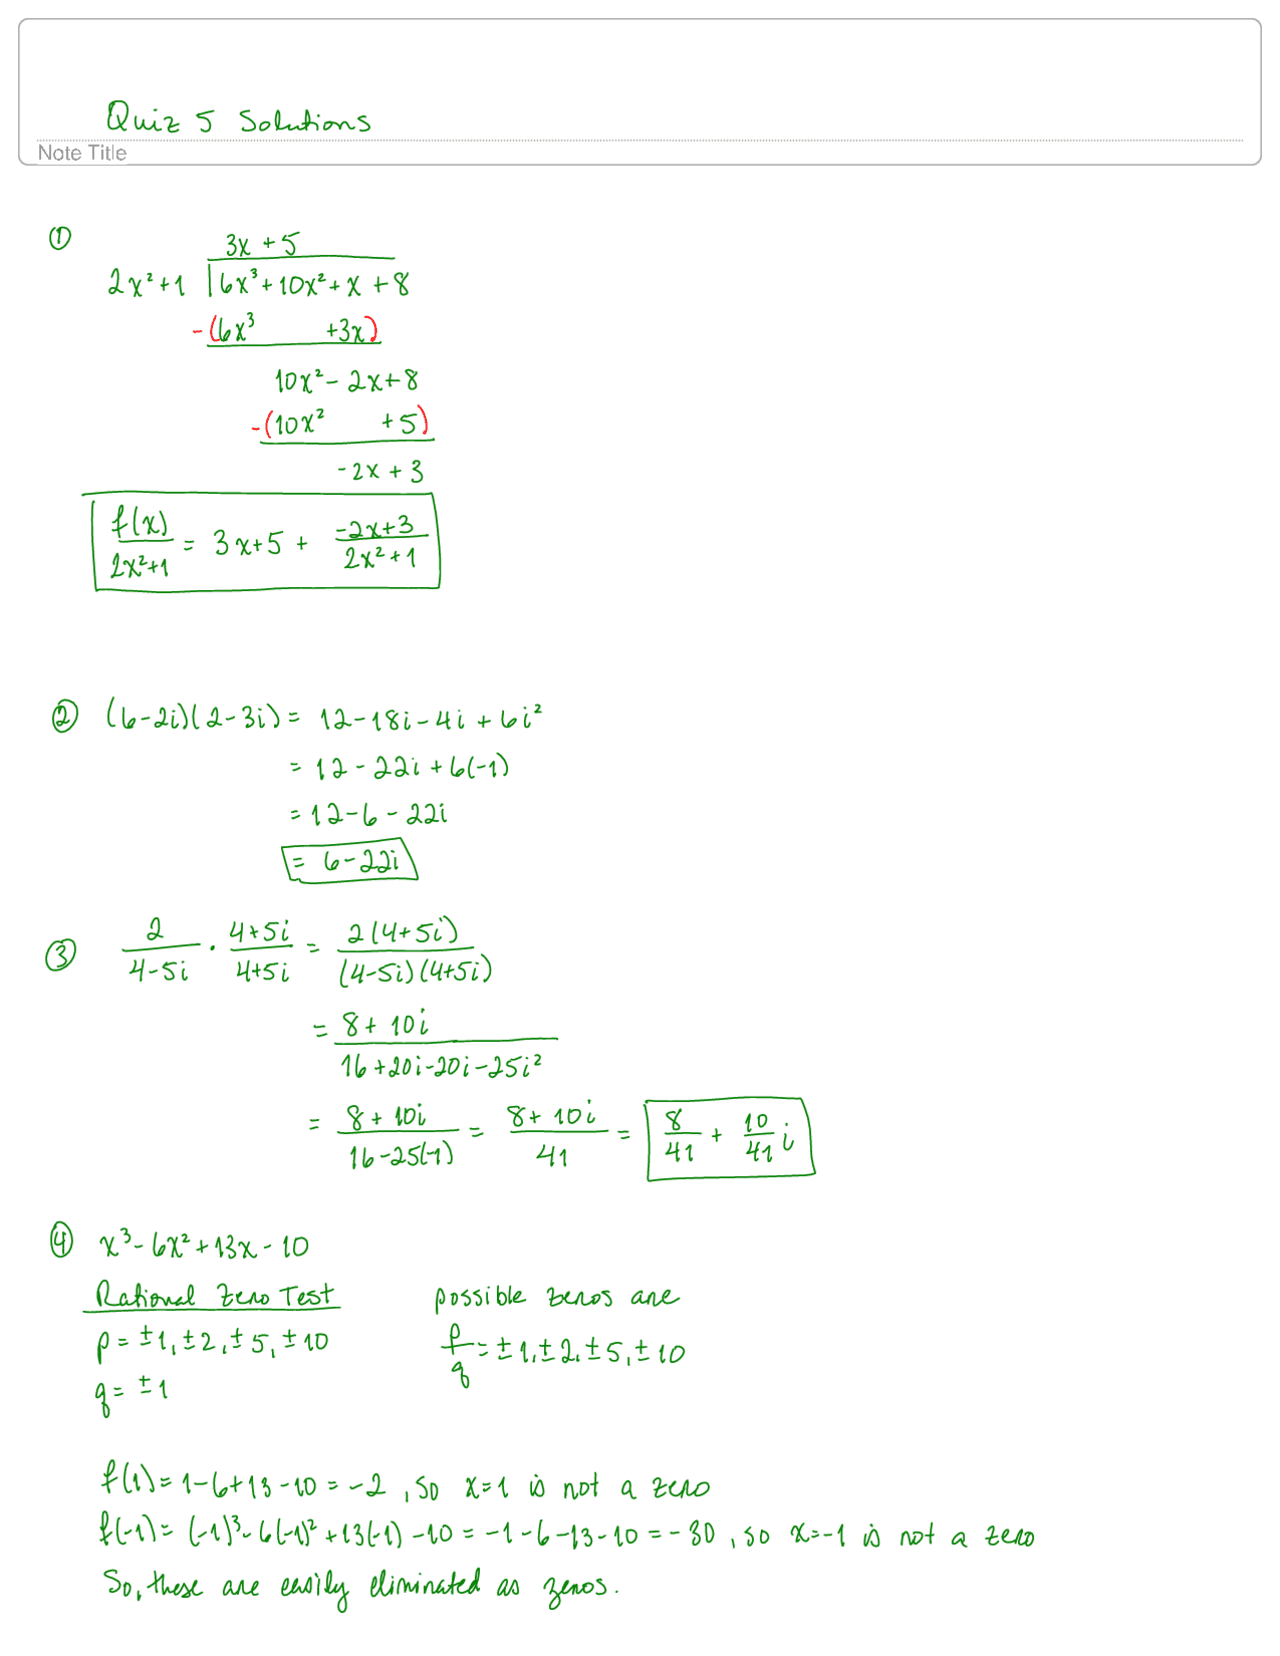 Quiz 5 Solutions
Note Title
①
3x + 5
2x²+1 | 6x³ + 10x² + x + 8
-(6x³ +3x)
10x² - 2x + 8
-(10x² + 5)
-2x + 3
f(x)/(2x²+1) = 3x+5 + (-2x+3)/(2x²+1)
② (6-2i)(2-3i) = 12-18i-4i + 6i²
= 12 - 22i + 6(-1)
= 12-6 - 22i
= 6-22i
③ 2/(4-5i) · (4+5i)/(4+5i) = 2(4+5i)/((4-5i)(4+5i))
= (8+ 10i)/(16+20i-20i-25i²)
= (8+ 10i)/(16-25(-1)) = (8+ 10i)/41 = 8/41 + 10/41 i
④ x³- 6x²+13x - 10
Rational Zero Test possible zeros are
p = ±1, ±2, ±5, ±10 p/q = ±1, ±2, ±5, ±10
q = ±1
f(1) = 1-6+13-10 = -2, so x=1 is not a zero
f(-1) = (-1)³- 6(-1)² + 13(-1) - 10 = -1-6-13-10 = -30, so x=-1 is not a zero
So, these are easily eliminated as zeros.